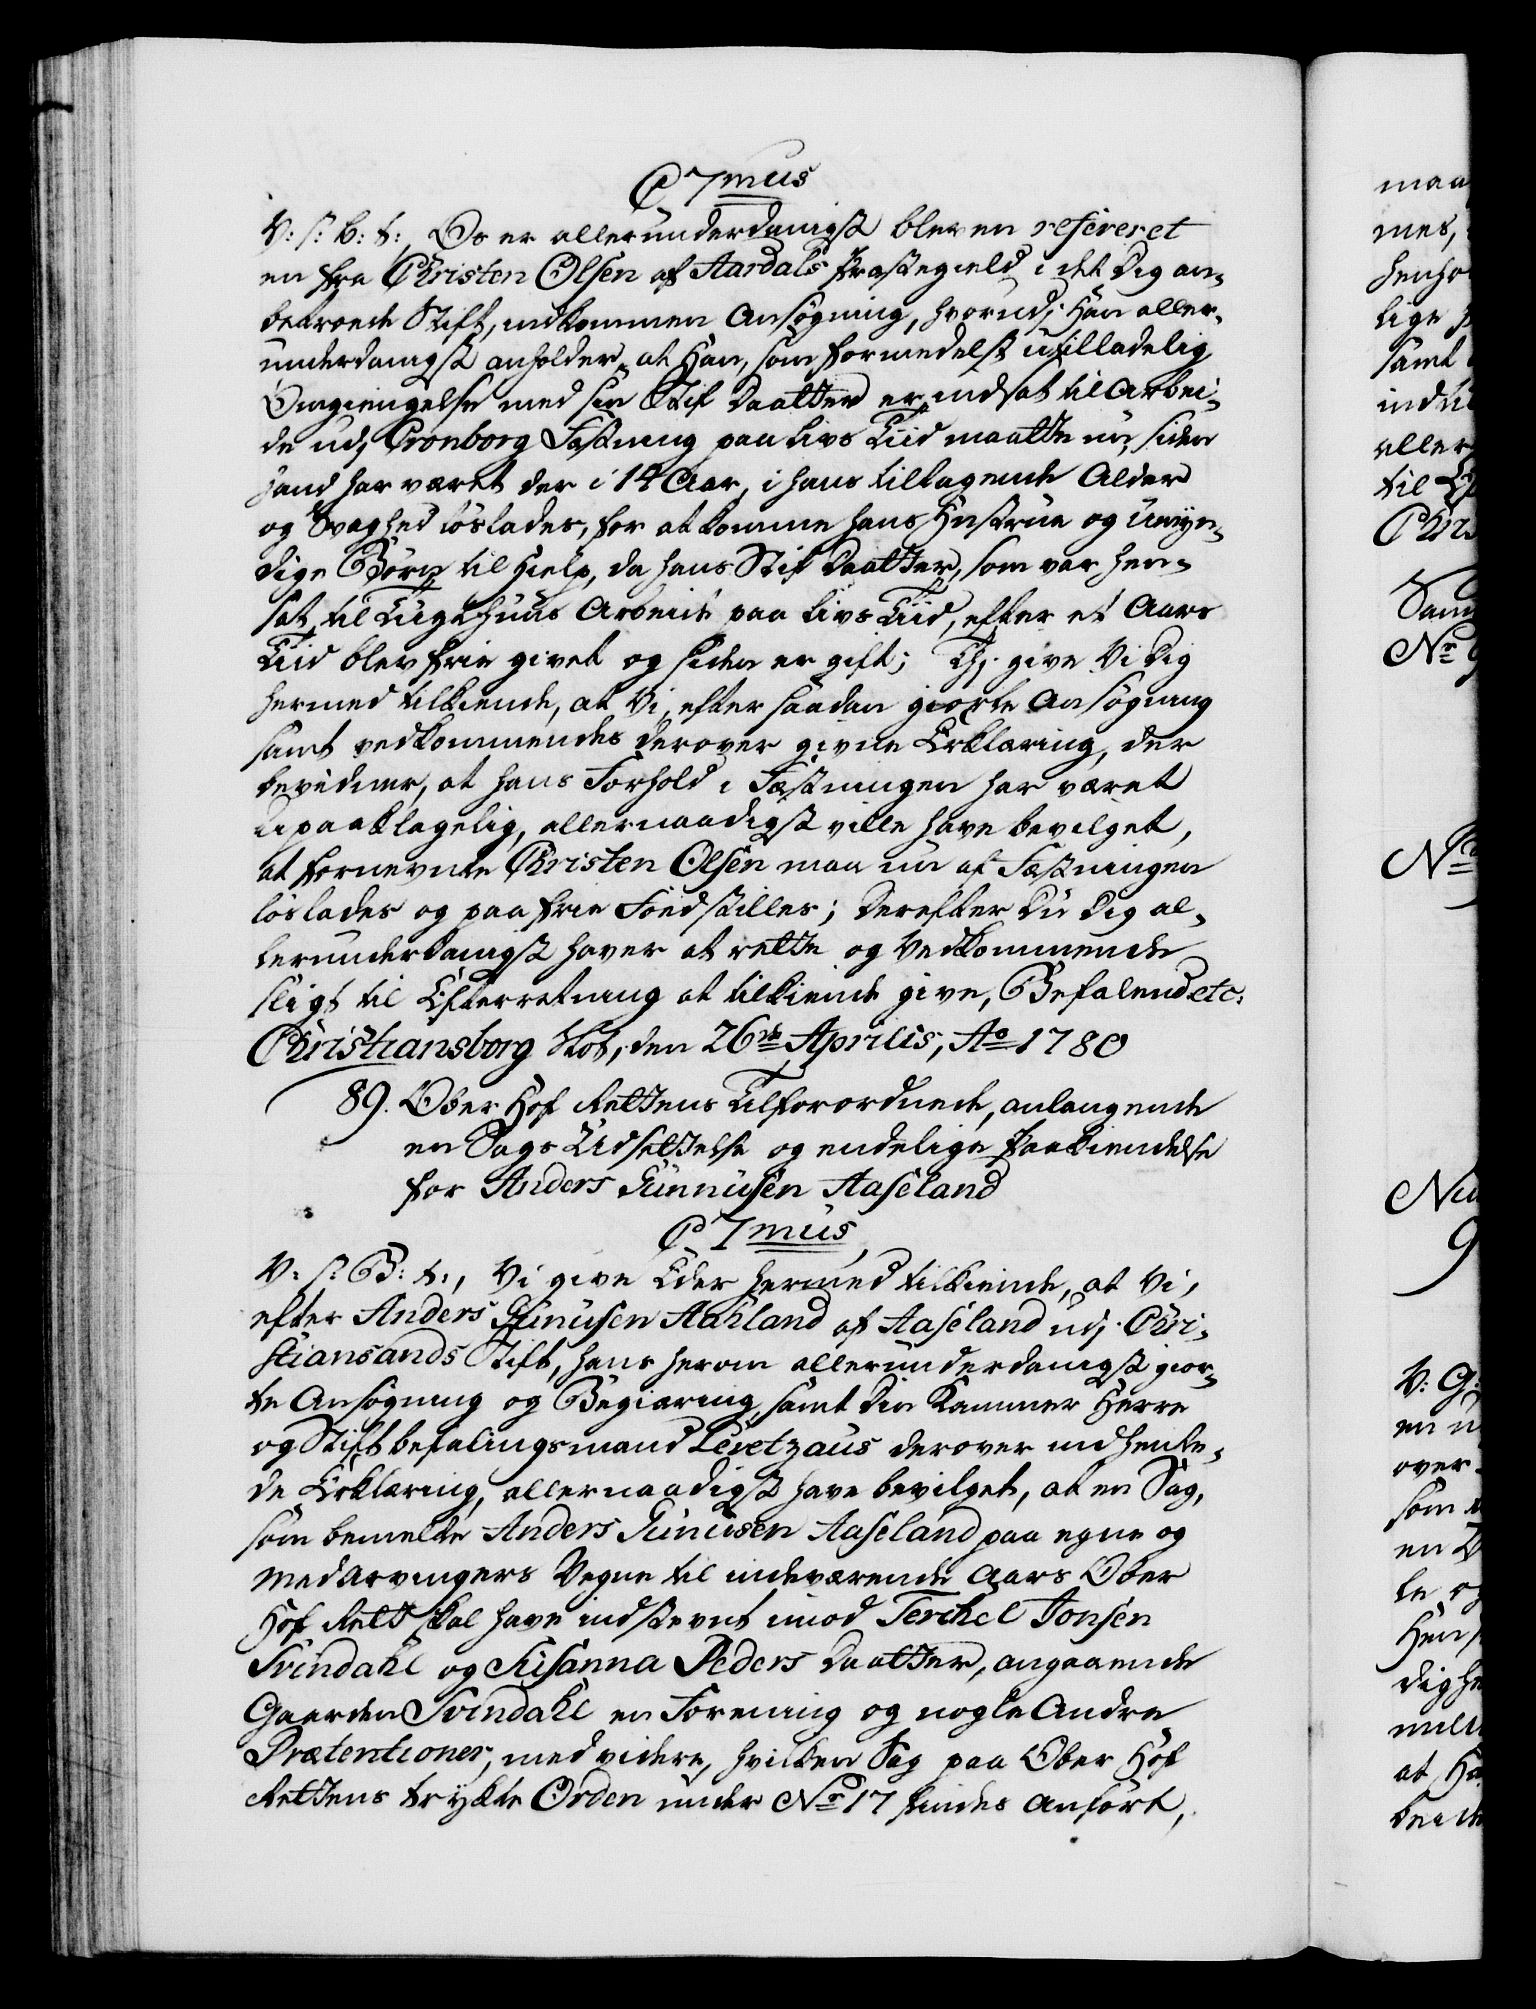 C 7mus
V: s: b: t:, Os er allerunderdanigst bleven refereret
en fra Christen Olsen af Aardals Præstegield i det Dig an-
betroede Stift, indkommen Ansøgning, hvorudj Han aller-
underdanigst anholder, at Han, som formedelst utilladelig
Omgiengelse med sin Stif Daatter er indsat til Arbei-
de udj Cronborg Fæstning paa Livs Tiid maatte nu, siden
hand har været der i 14 Aar, i hans tiltagende Alder
og Svaghed løslades, for at komme hans Hustrue og umyn-
dige Børn til Hielp, da hans Stif Daatter, som var hen-
sat til Tugthuus Arbeide paa Livs Tiid, efter et Aars
Tiid blev frie givet og siden er gift; Thj give Vi Dig
hermed tilkiende, at Vi, efter saadan giorte Ansøgning
samt vedkommendes derover givne Erklæring, der
bevidner, at hans Forhold i Fæstningen har været
upaaklagelig, allernaadigst ville have bevilget,
at fornevnte Christen Olsen maa nu af Fæstningen
løslades og paa frie Foed stilles; Derefter Du Dig al-
lerunderdanigst haver at rette og Vedkommende
sligt til Efterretning at tilkiende give, Befalend etc:
Christiansborg Slot, den 26de Aprilis, Ao 1780
89. Ober Hof Rettens Tilforordnede, anlangende
en Sags Udsættelse og endelige Paakiendelse
for Anders Gunnusen Aaseland
C 7mus
V: s: B: t:, Vi give Eder hermed tilkiende, at Vi,
efter Anders Gunusen Aahland af Aaseland udj Chri-
stiansands Stift, hans herom allerunderdanigst gior-
te Ansøgning og Begiæring, samt Din Kammer Herre
og Stiftbefalingsmand Levetzaus derover indhente-
de Erklæring, allernaadigst have bevilget, at en Sag,
som bemelte Anders Gunusen Aaseland paa egne og
Medarvingers Vegne til indeværende Aars Ober
Hof Rett skal have indstevnt imod Terchel Jonsen
Svindahl og Susanna Peders Daatter, angaaende
Gaarden Svindahl en Forening og nogle Andre
Prætentioner, med videre, hvilken Sag paa Ober Hof
Rettens trykte Orden under No 17 findes Anført,